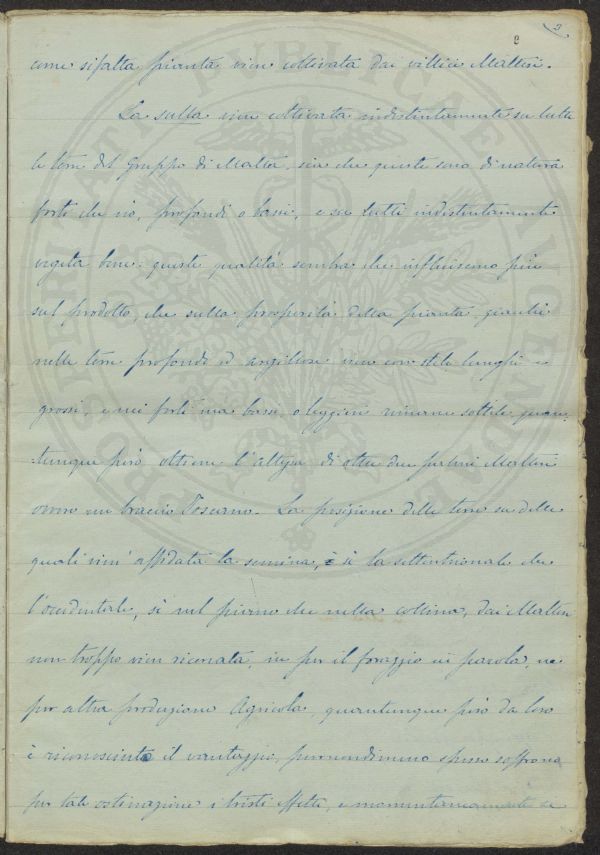 2
come sifatta pianta vien coltivata dai villici Maltesi.
La sulla vien coltivata indistintamente su tutte
le terre del Gruppo di Malta, sia che queste sono di natura
forti che no, profondi o bassi, e su tutti indistintamente
vegeta bene; queste qualità sembra che influiscono più
sul prodotto, che sulla prosperità della pianta giacchè
nelle terre profonde ed argillose vien con steli lunghi e
grossi, e nei forti ma bassi, o leggieri rimane sottile quan-
tunque però ottiene l'altezza di oltre due palmi Maltesi
ovvero un braccio Toscano. La posizione delle terre su delle
quali vien' affidata la semina, è sì la settentrionale che
l'occidentale, sì nel piano che nella collina, dai Maltesi
non troppo vien ricercata, ne per il foraggio in parola, ne
per altra produzione Agricola, quantunque però da loro
è riconosciuto il vantaggio, pure nondimeno spesso soffrono
per tale ostinazione i tristi effetti, e momentaneamente se
PROSPERITATI PUBLICAE AUGENDAE